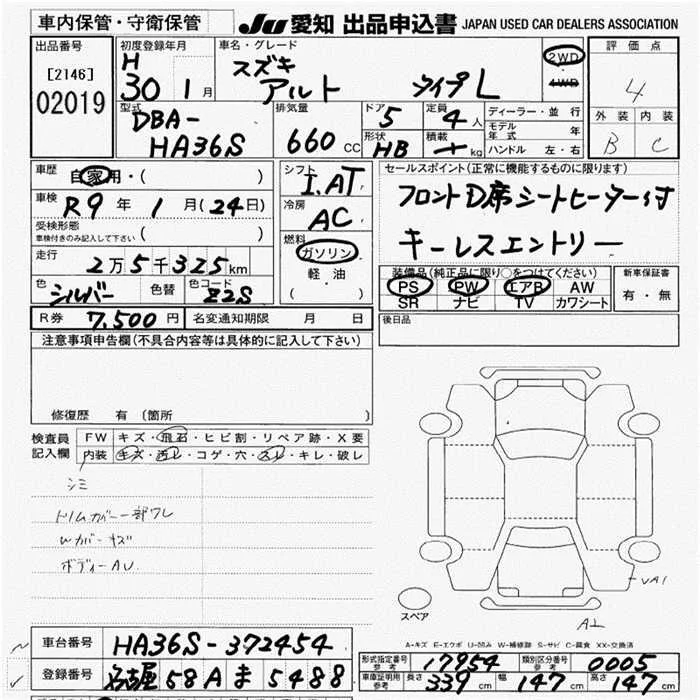 車内保管・守衛保管 JU 愛知 出品申込書 JAPAN USED CAR DEALERS ASSOCIATION
出品番号 [2146] 02019
初度登録年月 H 30 1 月
車名・グレード スズキ アルト タイプL
2WD 4WD
評価点 4
外装 内装
B C
型式 DBA-HA36S
排気量 660 CC
ドア 5 定員 4 人
形状 HB 積載 kg
ディーラー・並行
モデル年式 年
ハンドル 左・右
車歴 自家用・( )
車検 R9 年 1 月 (24日)
受検形態 車検付きのみ記入して下さい ( )
走行 2万5千325km
色 シルバー 色替 色コード Z2S
シフト I.AT
冷房 AC
燃料 ガソリン
軽・油
( )
セールスポイント(正常に機能するものに限ります)
フロントD席シートヒーター付
キーレスエントリー
装備品(純正品に限り○をつけてください)
PS PW エアB AW
SR ナビ TV カワシート
新車保証書
有・無
R券 7,500 円 名変通知期限 月 日
後日品
注意事項申告欄(不具合内容等は具体的に記入して下さい)
修復歴 有 (箇所 )
検査員記入欄
FW キズ・飛石・ヒビ割・リペア跡・X要
内装 キズ・汚レ・コゲ・穴・スレ・キレ・破レ
シミ
トリムカバー一部ワレ
Wカバーキズ
ボディーAU
VA1
A2
スペア
A-キズ E-エクボ U-凹み W-補修跡 S-サビ C-腐食 XX-交換済
車台番号 HA36S-372454
登録番号 名古屋 58A ま 5488
形式指定番号 参考 17954 類別区分番号 参考 0005
車庫証明用 参考 長さ 339 cm 幅 147 cm 高さ 147 cm